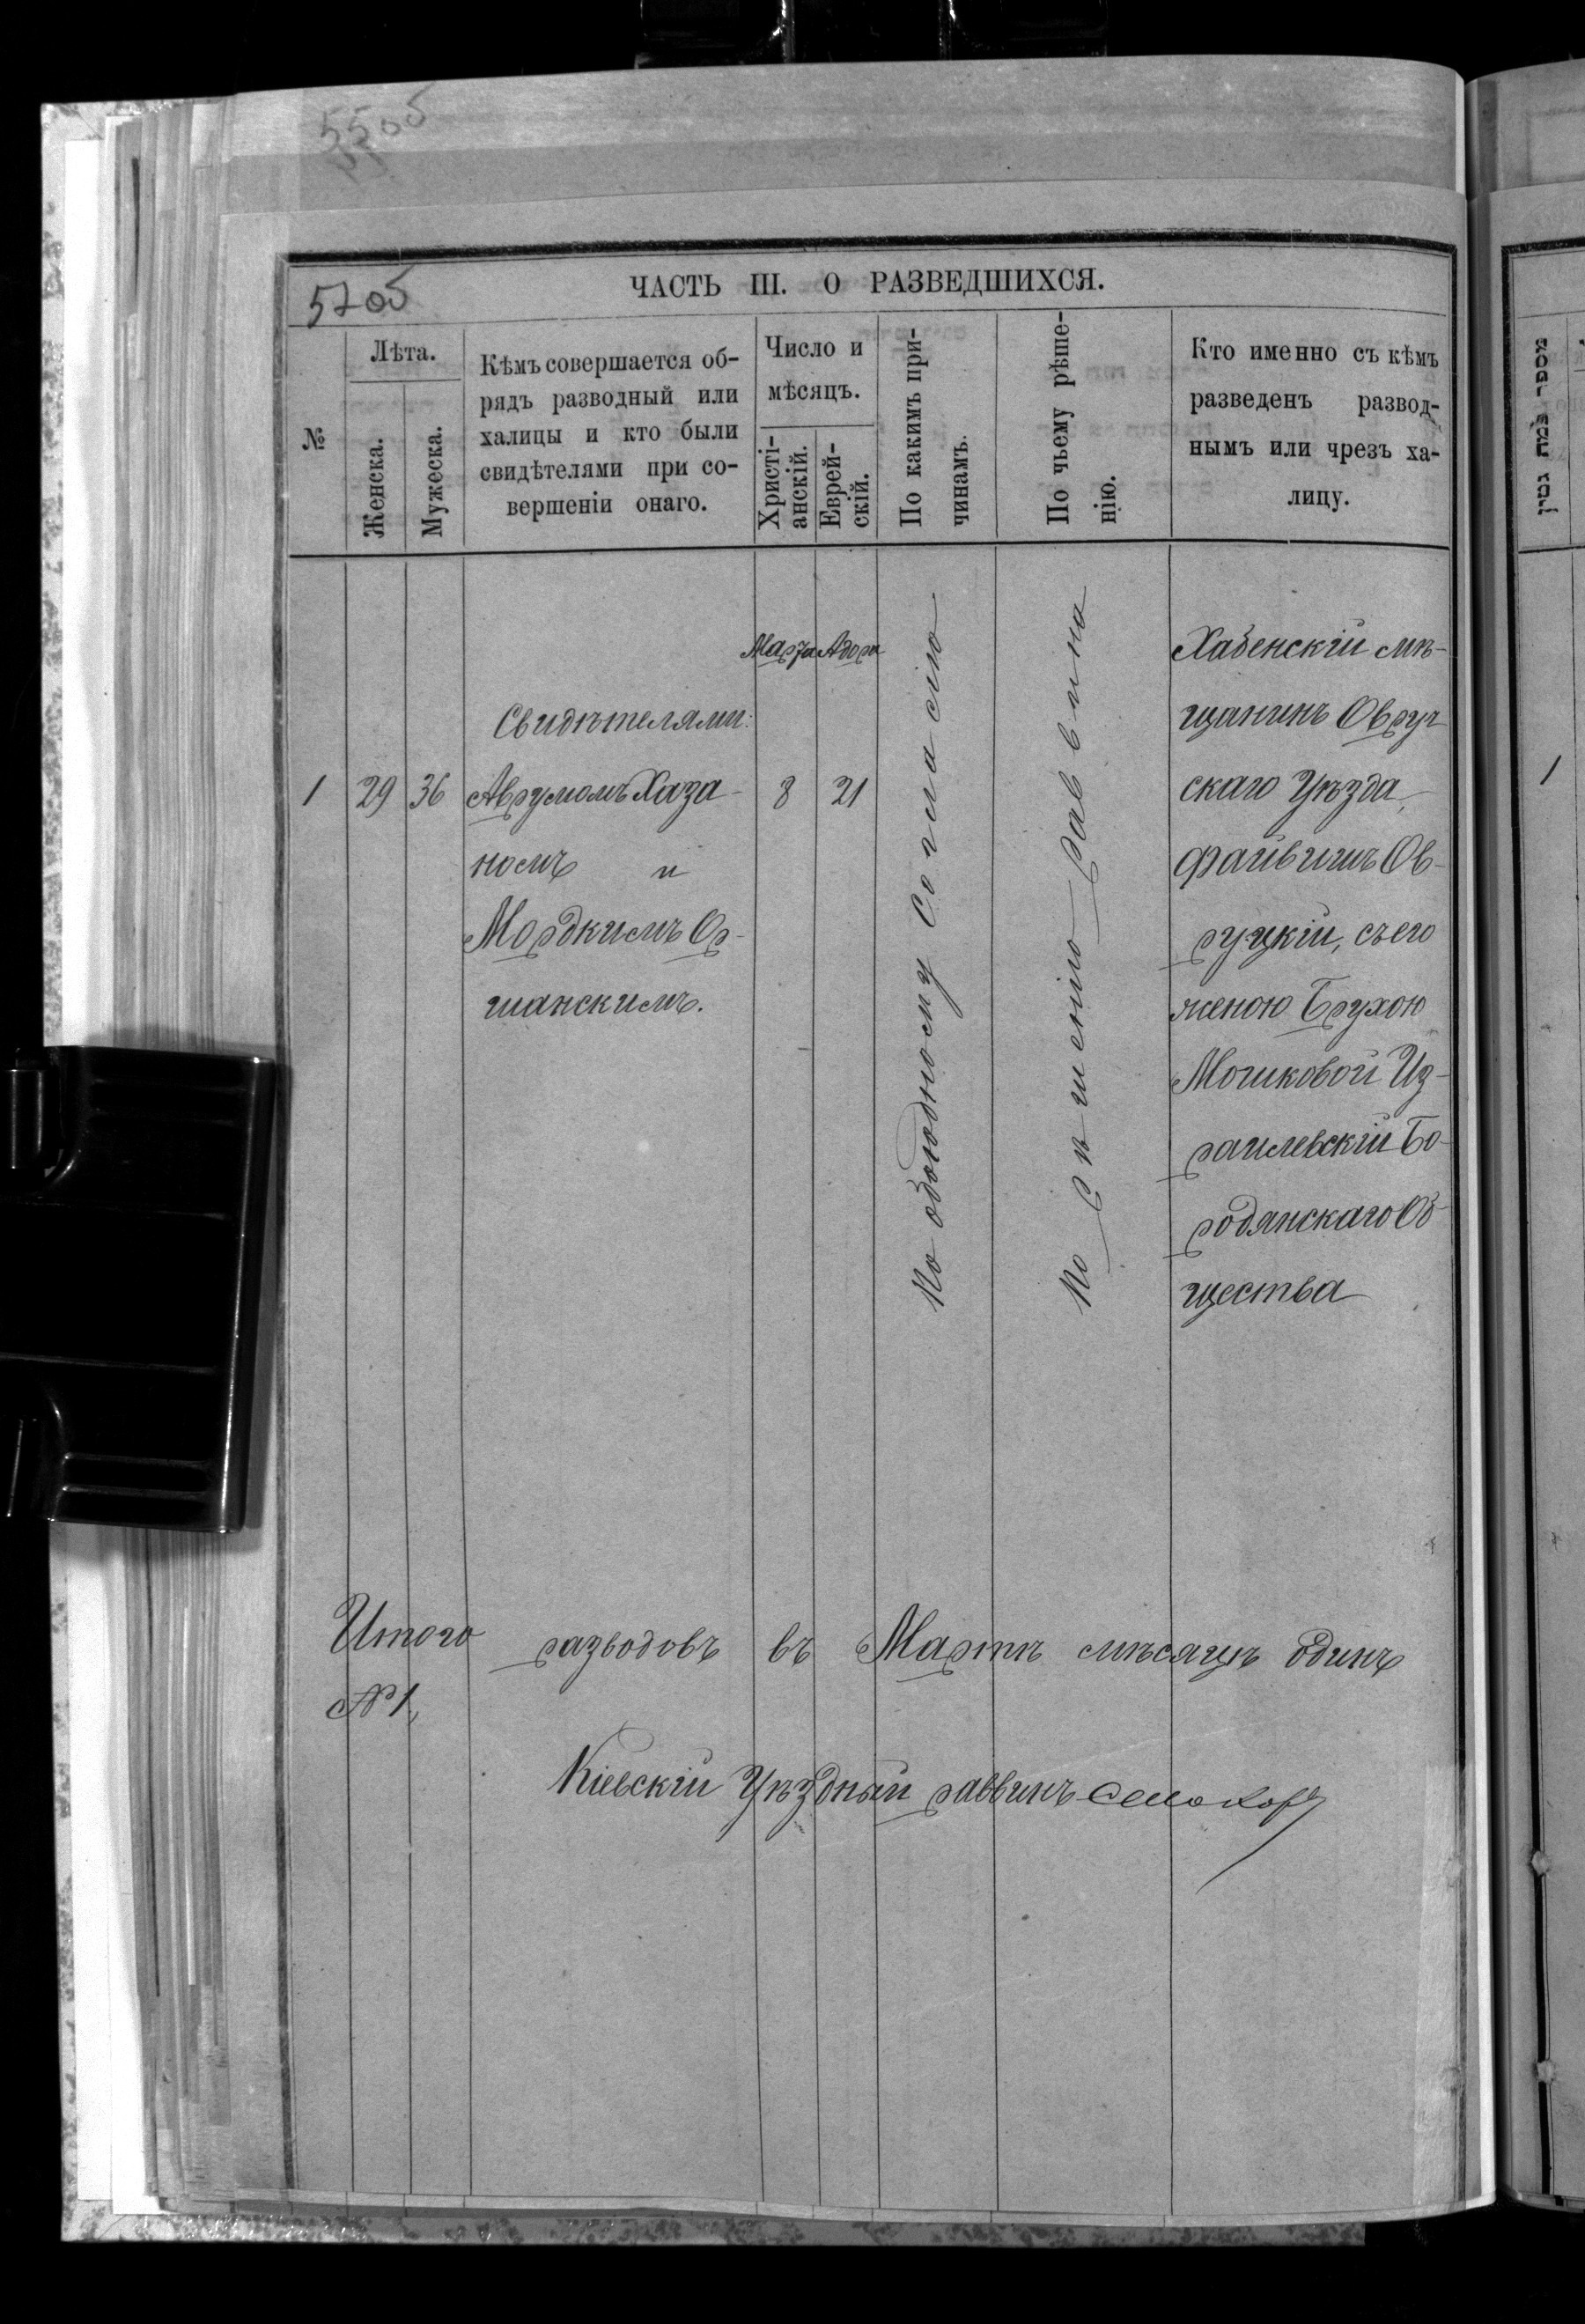 55об
57об
ЧАСТЬ III. О РАЗВЕДШИХСЯ.
№
Лѣта.
Женска.
Мужеска.
Кѣмъ совершается об-
рядъ разводный или
халицы и кто были
свидѣтелями при со-
вершеніи онаго.
Число и
мѣсяцъ.
Христі-
анскій.
Еврей-
скій.
По какимъ при-
чинамъ.
По чьему рѣше-
нію.
Кто именно съ кѣмъ
разведенъ развод-
нымъ или чрезъ ха-
лицу.
1
29
36
Свидѣтелями:
Аврумомъ Хаза-
номъ и
Мордкимъ Ор-
шанскимъ.
Марта
8
Адора
21
По обоюдному Согласію
По Рѣшенію Раввина
Хабенскій мѣ-
щанинъ Овруч
скаго Уѣзда,
Файвишъ Ов-
руцкій, съ его
женою Брухою
Мошковой Из-
раилевскій Бо-
родянскаго Об-
щества
Итого разводовъ въ Мартѣ мѣсяцѣ Одинъ
№ 1,
Кіевскій Уѣздный раввинъ
מספר כמה גטין
1